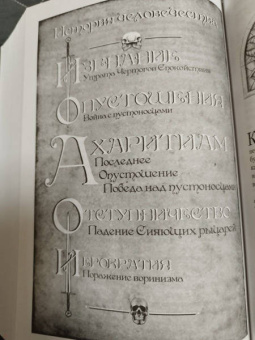 История человечества
Изгнание
Утрата Чертогов Спокойствия
Опустошения
Война с пустоносцами
Ахаритиам
Последнее
Опустошение
Победа над пустоносцами
Отступничество
Падение Сияющих рыцарей
Иерократия
Поражение воринизма